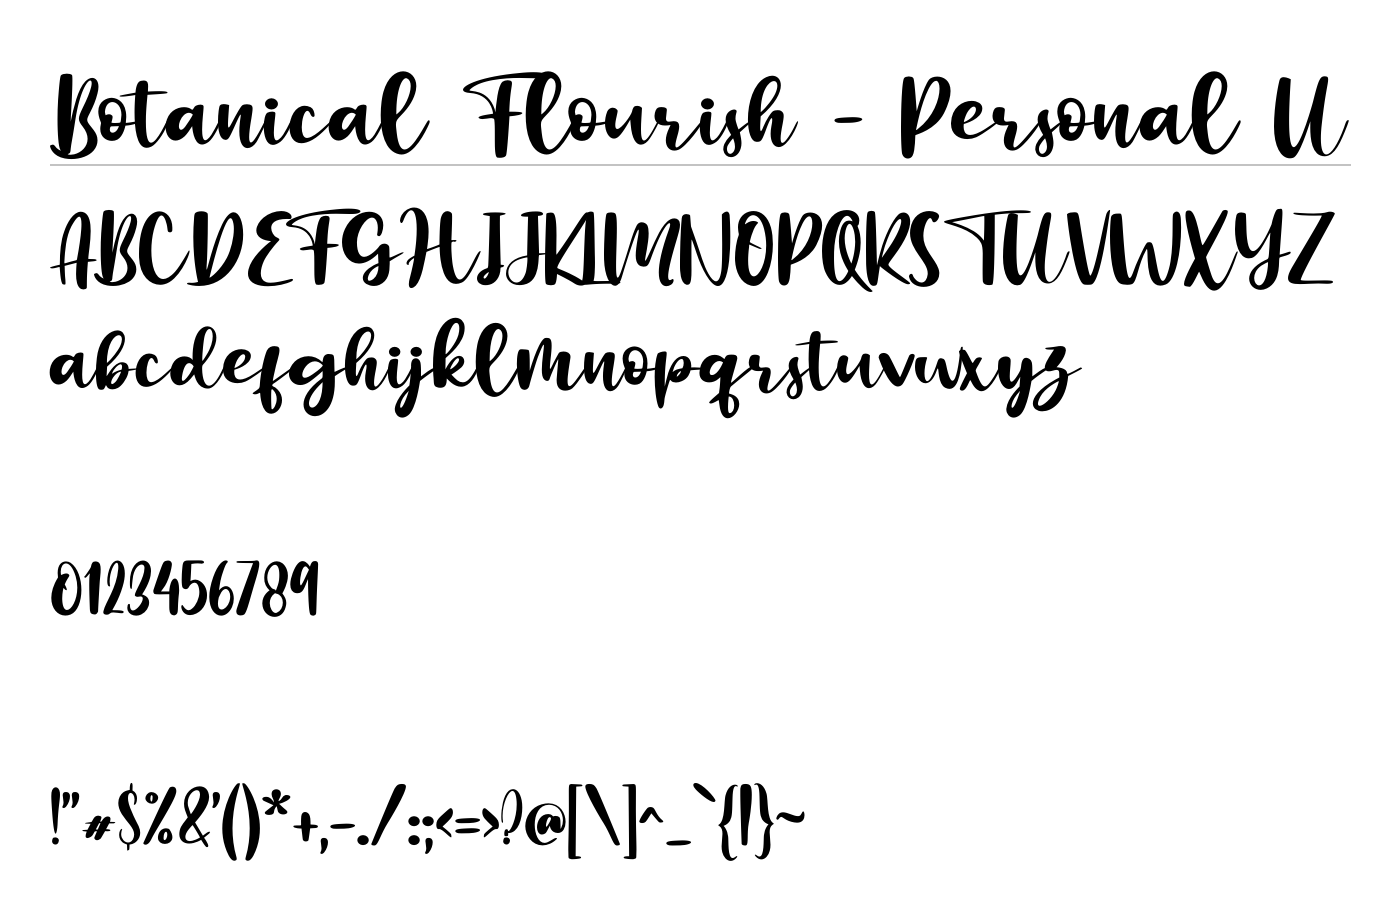 Botanical Flourish - Personal U
ABCDEFGHIJKLMNOPQRSTUVWXYZ
abcdefghijklmnopqrstuvwxyz
0123456789
!"#$%&'()*+,-./:;<=>?@[\]^_`{|}~